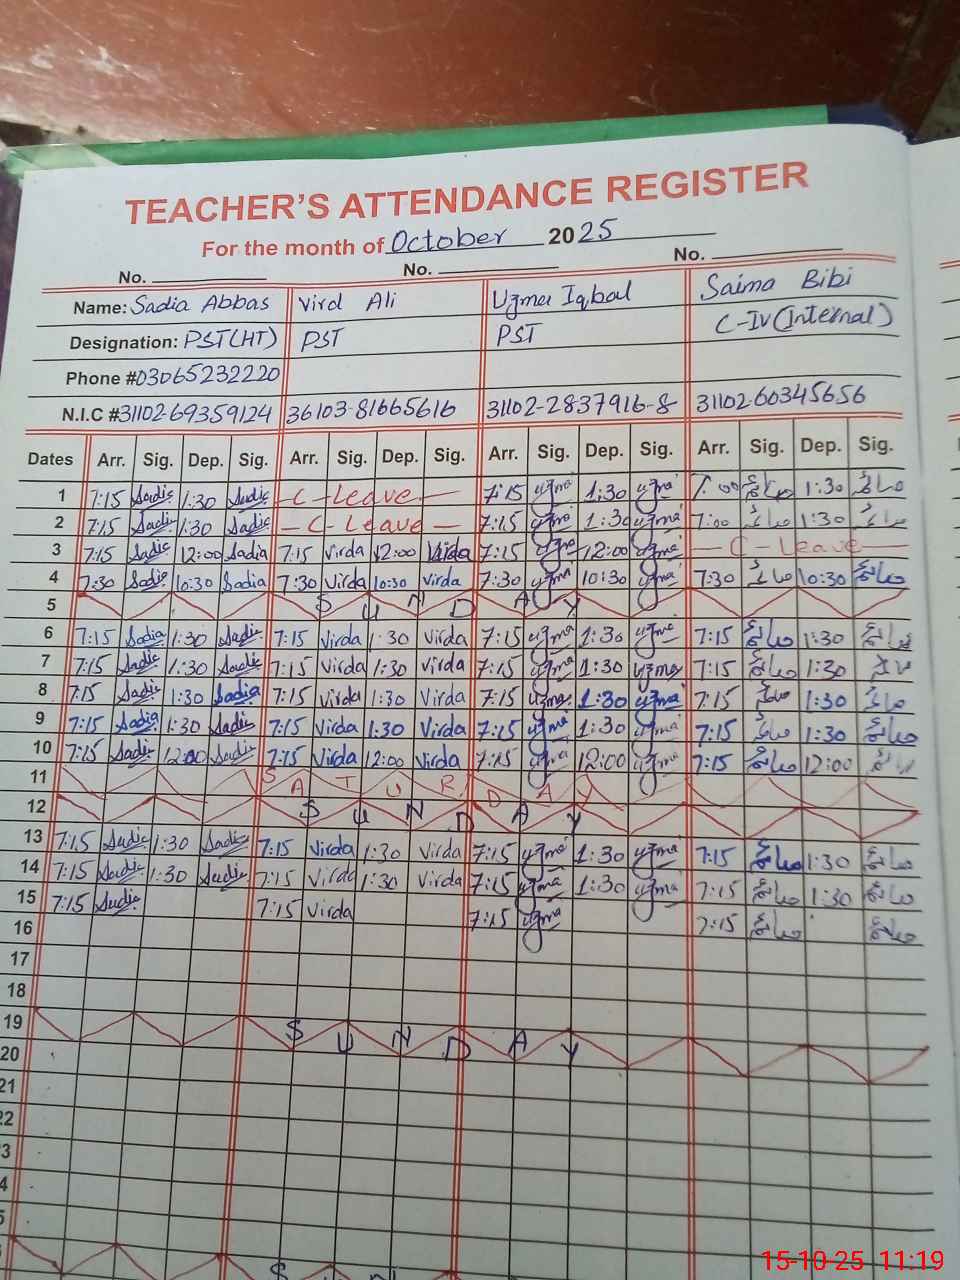 TEACHER'S ATTENDANCE REGISTER
For the month of October 2025
No. No. No.
Name: Sadia Abbas Vird Ali Uzma Iqbal Saima Bibi
Designation: PST(HT) PST PST C-IV(Internal)
Phone #03065232220
N.I.C #31102-69359124 36103-81665616 31102-2837916-8 31102-60345656
Dates Arr. Sig. Dep. Sig. Arr. Sig. Dep. Sig. Arr. Sig. Dep. Sig. Arr. Sig. Dep. Sig.
1 7:15 Sadia 1:30 Sadia C-Leave 7:15 uzma 1:30 uzma 7:00 صائمہ 1:30 صائمہ
2 7:15 Sadia 1:30 Sadia C-Leave 7:15 uzma 1:30 uzma 7:00 صائمہ 1:30 صائمہ
3 7:15 Sadia 12:00 Sadia 7:15 Virda 12:00 Virda 7:15 uzma 12:00 uzma C-Leave
4 7:30 Sadia 10:30 Sadia 7:30 Virda 10:30 Virda 7:30 uzma 10:30 uzma 7:30 صائمہ 10:30 صائمہ
5 SUNDAY
6 7:15 Sadia 1:30 Sadia 7:15 Virda 1:30 Virda 7:15 uzma 1:30 uzma 7:15 صائمہ 1:30 صائمہ
7 7:15 Sadia 1:30 Sadia 7:15 Virda 1:30 Virda 7:15 uzma 1:30 uzma 7:15 صائمہ 1:30
8 7:15 Sadia 1:30 Sadia 7:15 Virda 1:30 Virda 7:15 uzma 1:30 uzma 7:15 صائمہ 1:30 صائمہ
9 7:15 Sadia 1:30 Sadia 7:15 Virda 1:30 Virda 7:15 uzma 1:30 uzma 7:15 صائمہ 1:30 صائمہ
10 7:15 Sadia 12:00 Sadia 7:15 Virda 12:00 Virda 7:15 uzma 12:00 uzma 7:15 صائمہ 12:00
11 SATURDAY
12 SUNDAY
13 7:15 Sadia 1:30 Sadia 7:15 Virda 1:30 Virda 7:15 uzma 1:30 uzma 7:15 صائمہ 1:30 صائمہ
14 7:15 Sadia 1:30 Sadia 7:15 Virda 1:30 Virda 7:15 uzma 1:30 uzma 7:15 صائمہ 1:30 صائمہ
15 7:15 Sadia 7:15 Virda 7:15 uzma 7:15 صائمہ صائمہ
16
17
18
19 SUNDAY
20
21
22
3
4
5
S U N
15-10-25 11:19